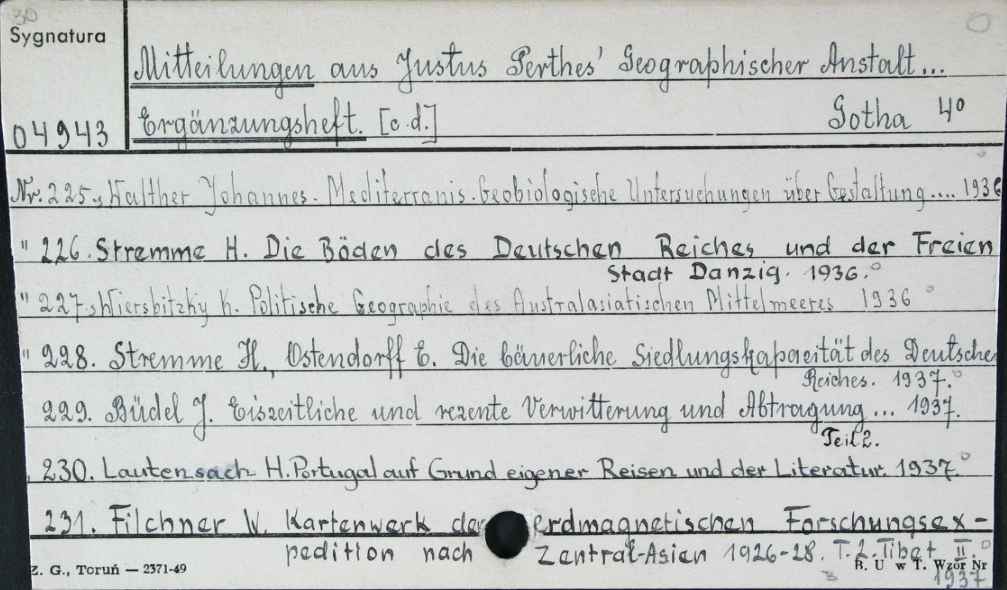 30
Sygnatura
04943
Mitteilungen aus Justus Perthes' Geographischer Anstalt...
Ergänzungsheft. [c.d.] Gotha 4°
Nr. 225., Walther Johannes. Mediterranis. Geobiologische Untersuchungen über Gestaltung.... 1936
" 226. Stremme H. Die Böden des Deutschen Reiches und der Freien
Stadt Danzig. 1936.°
" 227., Wiersbitzky K. Politische Geographie des Australasiatischen Mittelmeeres 1936°
" 228. Stremme H., Ostendorff E. Die bäuerliche Siedlungskapazität des Deutsche
Reiches. 1937.°
229. Büdel J. Eiszeitliche und rezente Verwitterung und Abtragung... 1937.
Teil 2.
230. Lautensach H. Portugal auf Grund eigener Reisen und der Literatur. 1937.°
231. Filchner W. Kartenwerk der erdmagnetischen Forschungsex-
pedition nach Zentral-Asien 1926-28. T. 2. Tibet II.°
1937
Z. G., Toruń — 2371-49
B. U w T. Wzór Nr 3